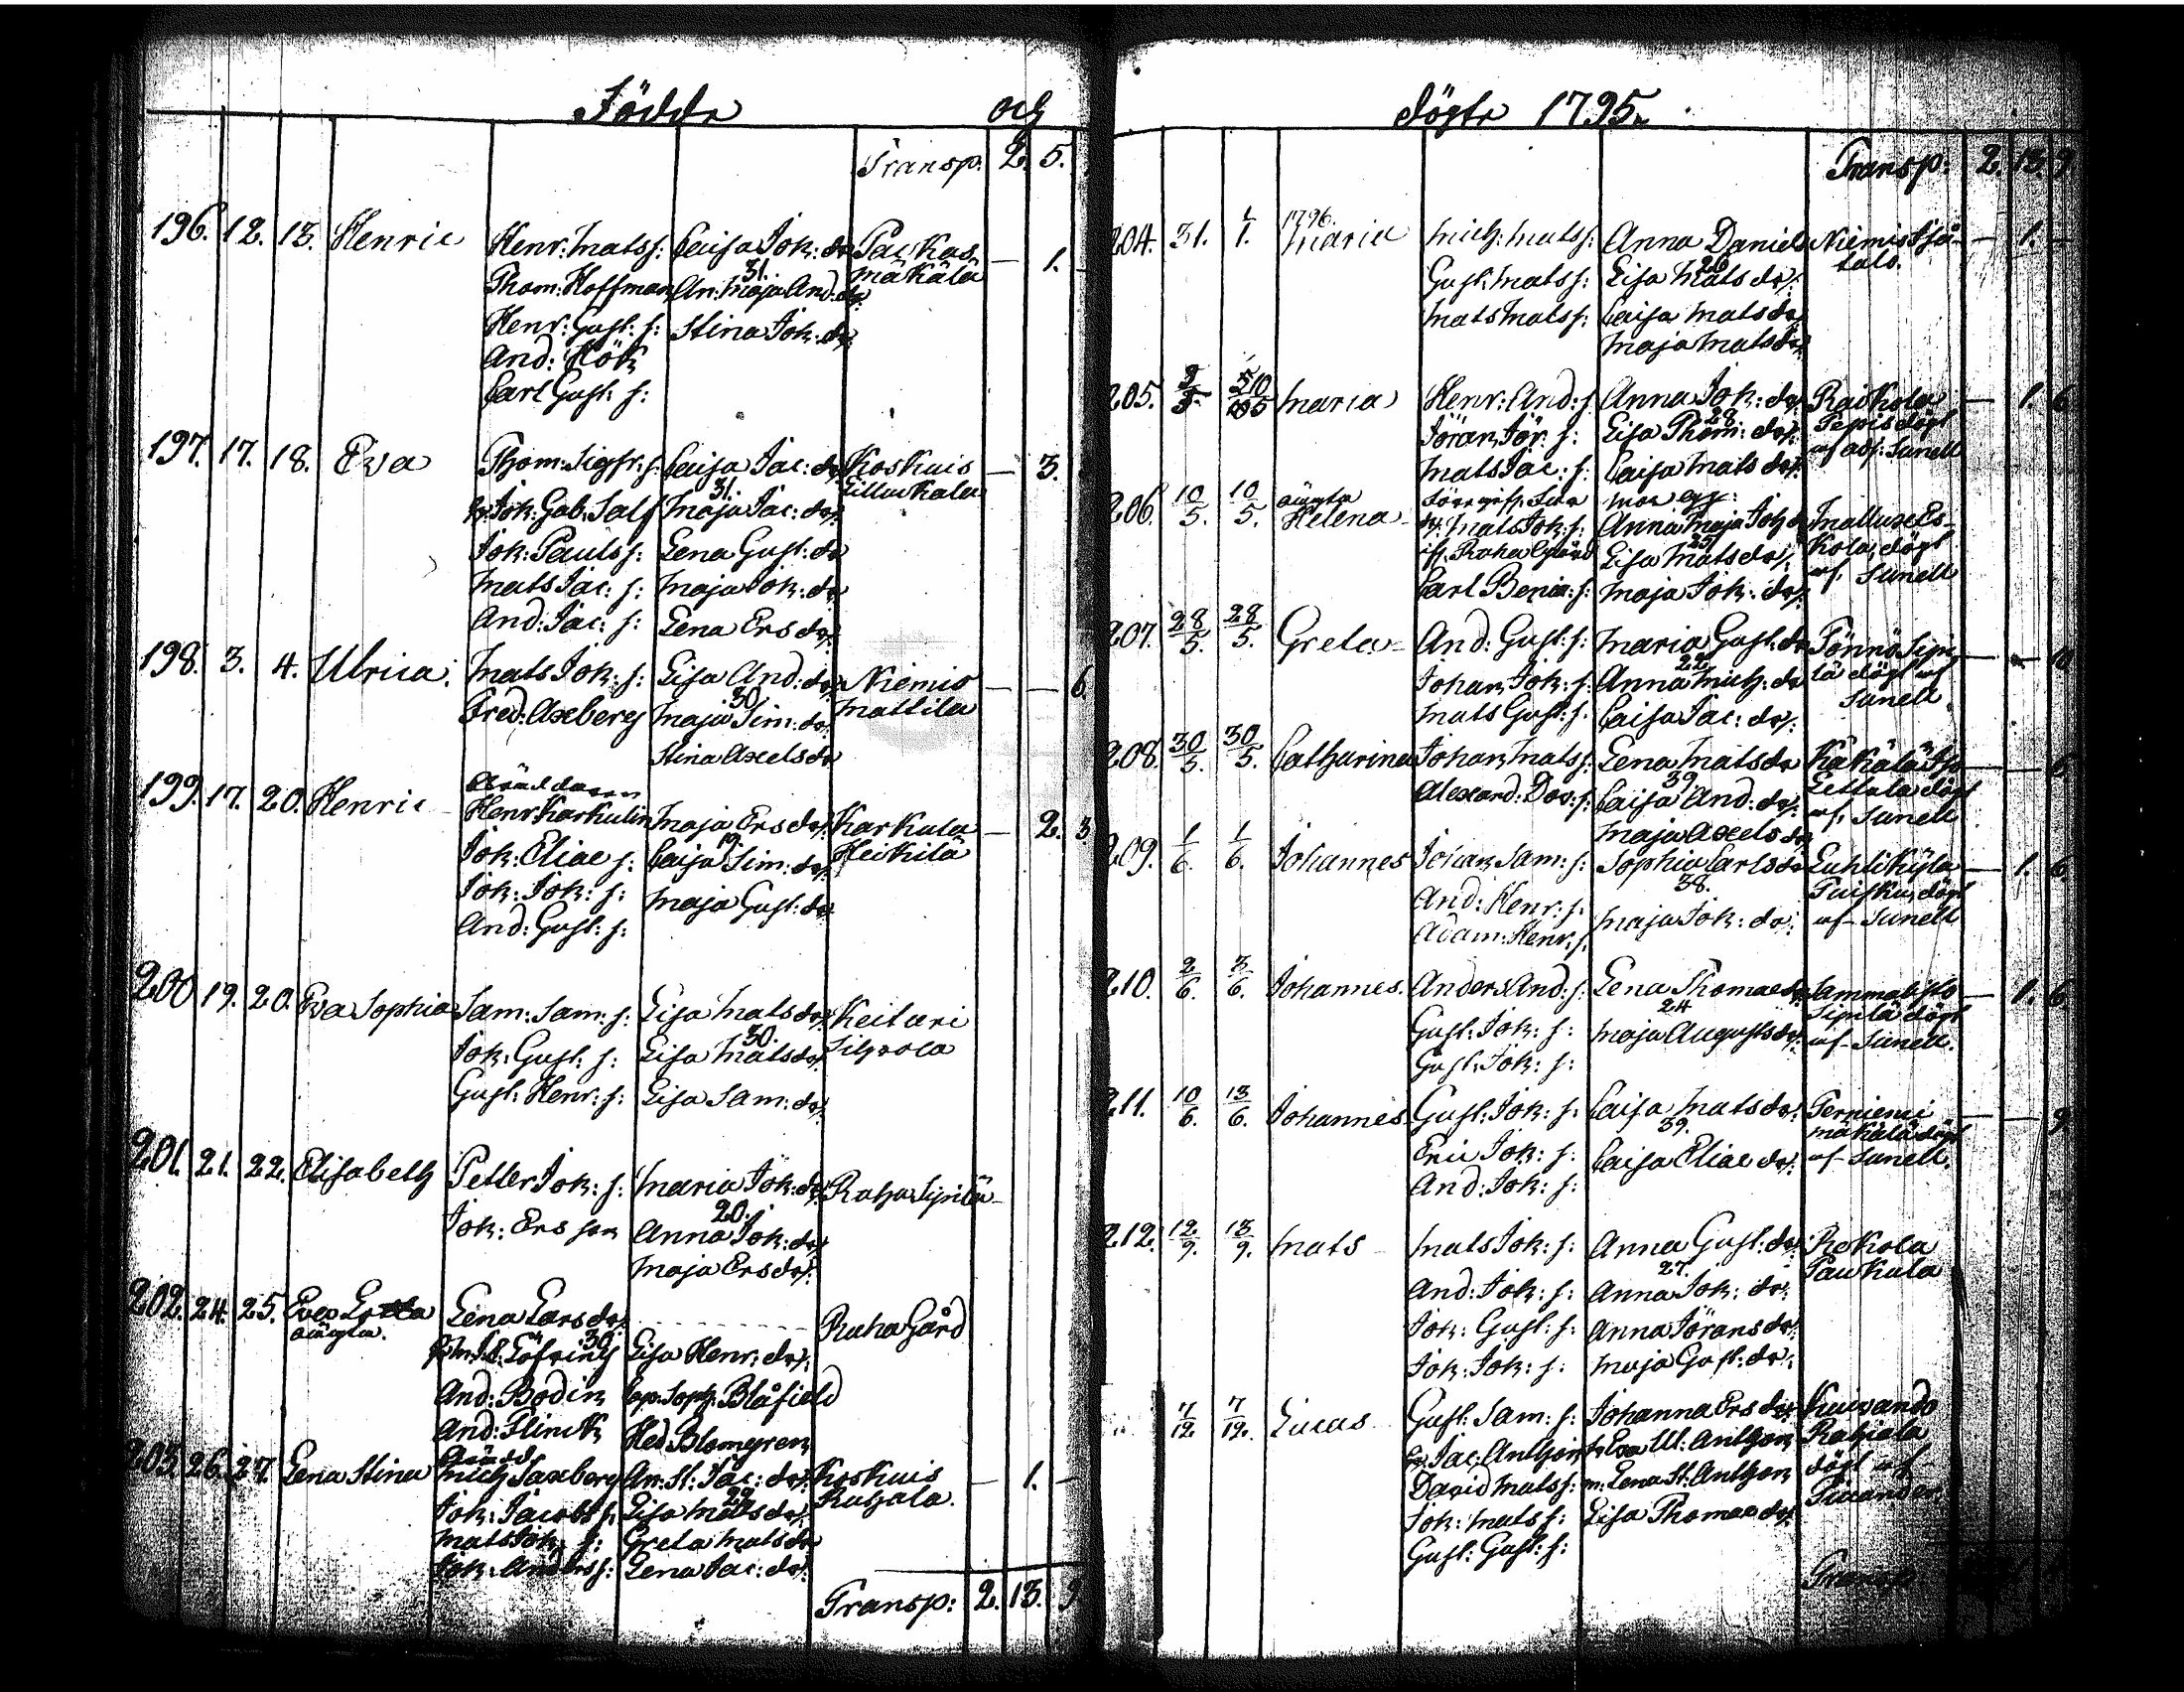 Födde och
Transp. 2. 5.
196. 12. 13. Henric Henr: Mats s: Caisa Joh: dr. Paukas — 1. —
Thom: Hoffman 31. An: Maja And: dr. Mäkälä
Henr: Gust: s: Stina Joh: dr.
And: Hök
Carl Gust: s:
197. 17. 18. Eva Thom: Sigfr: s: Caisa Jac: dr. Koskuis — 3.
Joh: Gab: Salf 31. Maja Jac: dr. Lillukala
Joh: Pauls s: Lena Gust: dr
Mats Jac: s: Maja Joh: dr
And: Jac: s: Lena Ers dr.
198. 3. 4. Ulrica. Mats Joh: s: Lisa And: dr. Niemis — — 6.
Fred: Axeberg 30. Maja Sim: dr. Mattila
Stina Axels dr
199. 17. 20. Henric
Henr Karkulin Maja Ers dr. Karkula — 2. 3.
Joh: Eliae s: 19. Caisa Sim: dr. Heikilä
Joh: Joh: s: Maja Gust: dr.
And: Gust: s:
200 19. 20. Eva Sophia Sam: Sam: s: Lisa Mats dr. Keituri
Joh: Gust: s: 30. Lisa Mats dr. Silvola
Gust: Henr: s: Lisa Sam: dr.
201. 21. 22. Elisabeth Petter Joh: s: Maria Joh: dr. Raha Sipilä
Joh: Ers son 20. Anna Joh: dr.
Maja Ers dr.
202. 24. 25. Eva Lena Lars dr. Raha Gård
oäugta. 30. Löfving Lisa Henr: dr.
And: Bodin Soph: Blåfield
And: Flinck Hed: Blomgren
203. 26. 27. Lena Stina Mich Saxberg An: St: Jac: dr. Koskuis — 1. —
Joh: Jacobs s: 29. Lisa Mats dr. Rahala.
Mats Joh: s: Greta Mats dr
Joh: Anders s: Lena Jac: dr.
Transp: 2. 13. 9
döpte 1795.
Transp: 2. 13. 9.
204. 31. 1/1. 1796. Maria Mich: Mats s: Anna Daniels Niemis — 1. —
Gust: Mats s: 26 Lisa Mats dr. talo.
Mats Mats s: Caisa Mats dr
Maja Mats dr.
205. Maria Henr: And: s Anna Joh: dr. Raikola — 1. 6
Jöran Jör: s: 29 Lisa Thom: dr. döpt
Mats Jac: s: Caisa Mats dr. af adj: Sunell
206. 10/5. 10/5. oäugta Helena
Mats Joh: s: Anna Maja Joh: dr
Raha Gård 25. Lisa Mats dr. kola, döpt
Carl Benia: s: Maja Joh: dr. af. Sunell
207. 28/5. 28/5. Greta And: Gust: s: Maria Gust: dr Pönnö Sipi — — 10
Johan Joh: s: 22. Anna Mich: dr lä döpt af
Mats Gust: s. Caisa Jac: dr. Sunell
208. 30/5. 30/5. Catharina Johan Mats s: Lena Mats dr Käkälä — — 6
Alexand: Dav: s: 39. Caisa And: dr. döpt
Maja Axels dr af. Sunell
209. 1/6. 1/6. Johannes Johan Sam: s: Sophia Carls dr Luhtikylä — 1. 6.
And: Henr: s. 38. Puisku, döpt
Adam: Henr: s. Maja Joh: dr. af Sunell
210. 2/6. 3/6. Johannes. Anders And: s: Lena Thomae dr. Sammalisto — 1. 6
Gust: Joh: s: 24 Maja Augusts dr. Sipilä döpt
Gust: Joh: s: af Sunell.
211. 10/6. 13/6. Johannes Gust: Joh: s: Caisa Mats dr. Perniemi — — 9
Eric Joh: s: 39. Caisa Eliae dr. Mäkälä döpt
And: Joh: s: af Sunell.
212. 12/9. 13/9. Mats Mats Joh: s: Anna Gust: dr. Rekola
And: Joh: s: 27. Anna Joh: dr. Paukula
Joh: Gust: s: Anna Jörans dr.
Joh: Joh: s: Maja Gust: dr.
7/12. 7/12. Lucas Gust: Sam: s: Johanna Ers dr. Kuivando
Jac: Anthon Eva Ul: Anthon Rahiala
David Mats s: m: Lena St: Anthon döpt af
Joh: Mats s: Lisa Thomae dr.
Gust: Gust: s: